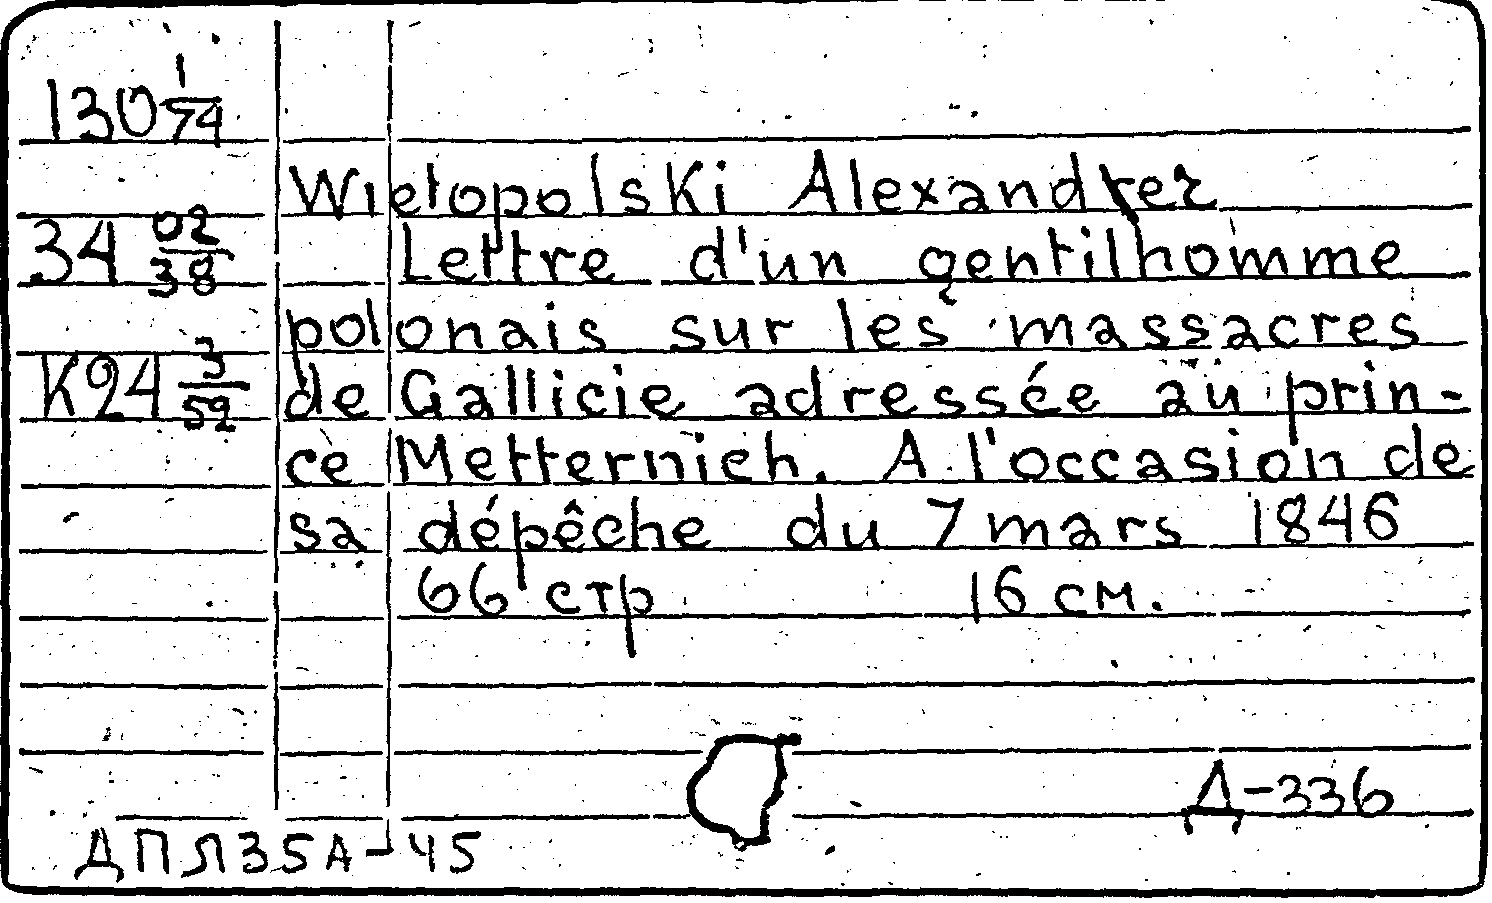 130 1/74
Wielopolski Alexander
34 02/38
Lettre d'un gentilhomme
polonais sur les massacres
K24 3/52
de Gallicie adressée au prin-
ce Metternich. A l'occasion de
sa dépêche du 7 mars 1846
66 стр 16 см.
Д-336
ДПЛ35А-45